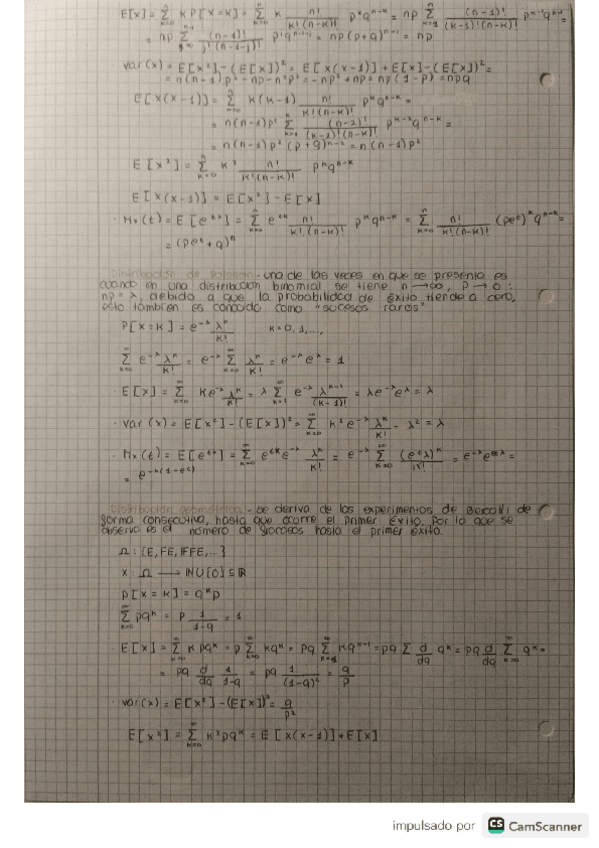 E[x] = Σ k P[x=k] = Σ k n!/k!(n-k)! p^k q^n-k = np Σ (n-1)!/(k-1)!(n-k)! p^k-1 q^n-k =
= np Σ (n-1)!/j!(n-1-j)! p^j q^n-1-j = np(p+q)^n-1 = np
var(x) = E[x²] - (E[x])² = E[x(x-1)] + E[x] - (E[x])² =
= n(n-1)p² - np - n²p² = -np² + np = np(1-p) = npq
E[x(x-1)] = Σ k(k-1) n!/k!(n-k)! p^k q^n-k =
= n(n-1)p² Σ (n-2)!/(k-2)!(n-k)! p^k q^n-k =
= n(n-1)p² (p+q)^n-2 = n(n-1)p²
E[x²] = Σ k² n!/k!(n-k)! p^k q^n-k
E[x(x-1)] = E[x²] - E[x]
· Mx(t) = E[e^tx] = Σ e^tk n!/k!(n-k)! p^k q^n-k = Σ n!/k!(n-k)! (pe^t)^k q^n-k =
= (pe^t + q)^n
Distribución de Poisson - una de las veces en que se presenta es
cuando en una distribución binomial se tiene n → ∞, p → 0 :
np = λ, debido a que la probabilidad de éxito tiende a cero,
esto también es conocido como "sucesos raros"
P[x=k] = e^-λ λ^k/k! k = 0, 1, ...,
Σ e^-λ λ^k/k! = e^-λ Σ λ^k/k! = e^-λ e^λ = 1
· E[x] = Σ k e^-λ λ^k/k! = λ Σ e^-λ λ^k-1/(k-1)! = λe^-λ e^λ = λ
· var(x) = E[x²] - (E[x])² = Σ k² e^-λ λ^k/k! - λ² = λ
· Mx(t) = E[e^tx] = Σ e^tk e^-λ λ^k/k! = e^-λ Σ (e^tλ)^k/k! = e^-λ e^e^tλ =
= e^-λ(1-e^t)
Distribución geométrica - se deriva de los experimentos de Bernoulli de
forma consecutiva, hasta que ocurre el primer éxito. Por lo que se
observa es el número de fracasos hasta el primer éxito.
Ω : {E, FE, FFE, ...}
x : Ω → ℕ∪{0} ⊆ ℝ
P[x=k] = q^k p
Σ pq^k = p 1/1-q = 1
· E[x] = Σ k pq^k = p Σ kq^k = pq Σ kq^k-1 = pq Σ d/dq q^k = pq d/dq Σ q^k =
= pq d/dq 1/1-q = pq 1/(1-q)² = q/p
· var(x) = E[x²] - (E[x])² = q/p²
E[x²] = Σ k² pq^k = E[x(x-1)] + E[x]
impulsado por CS CamScanner